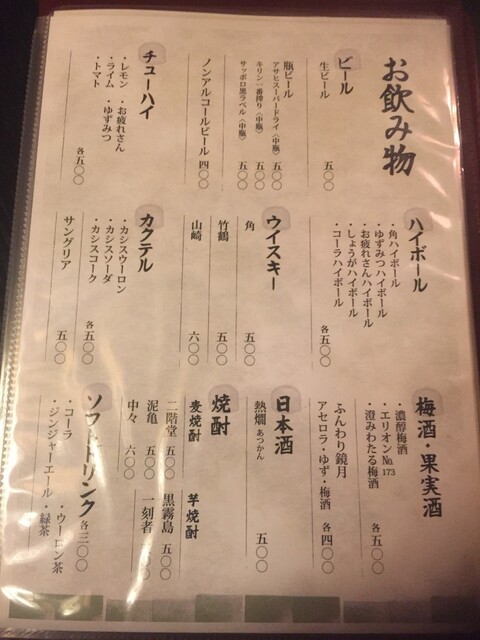 お飲み物
ビール
生ビール 五〇〇
瓶ビール
アサヒスーパードライ（中瓶） 五〇〇
キリン一番搾り（中瓶） 五〇〇
サッポロ黒ラベル（中瓶） 五〇〇
ノンアルコールビール 四〇〇
チューハイ
・レモン ・お疲れさん
・ライム ・ゆずみつ
・トマト
各五〇〇
ハイボール
・角ハイボール
・ゆずみつハイボール
・お疲れさんハイボール
・しょうがハイボール
・コーラハイボール
各五〇〇
ウイスキー
角 五〇〇
竹鶴 五〇〇
山崎 六〇〇
カクテル
・カシスウーロン
・カシスソーダ
・カシスコーク
各五〇〇
サングリア 五〇〇
梅酒・果実酒
・濃醇梅酒
・エリオンNo.173
・澄みわたる梅酒
各五〇〇
ふんわり鏡月
アセロラ・ゆず・梅酒
各四〇〇
日本酒
熱燗 あつかん 五〇〇
焼酎
麦焼酎
二階堂 五〇〇
泥亀 五〇〇
中々 六〇〇
芋焼酎
黒霧島 五〇〇
一刻者 五〇〇
ソフトドリンク 各三〇〇
・コーラ ・ウーロン茶
・ジンジャーエール ・緑茶